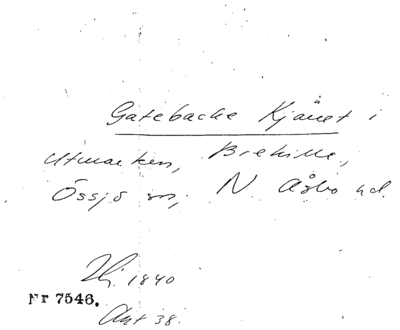 Gatebacke Kjäret i
Utmarken, Brehille,
Össjö sn, N Åsbo hd.
1840
Nr 7546.
Akt 38.